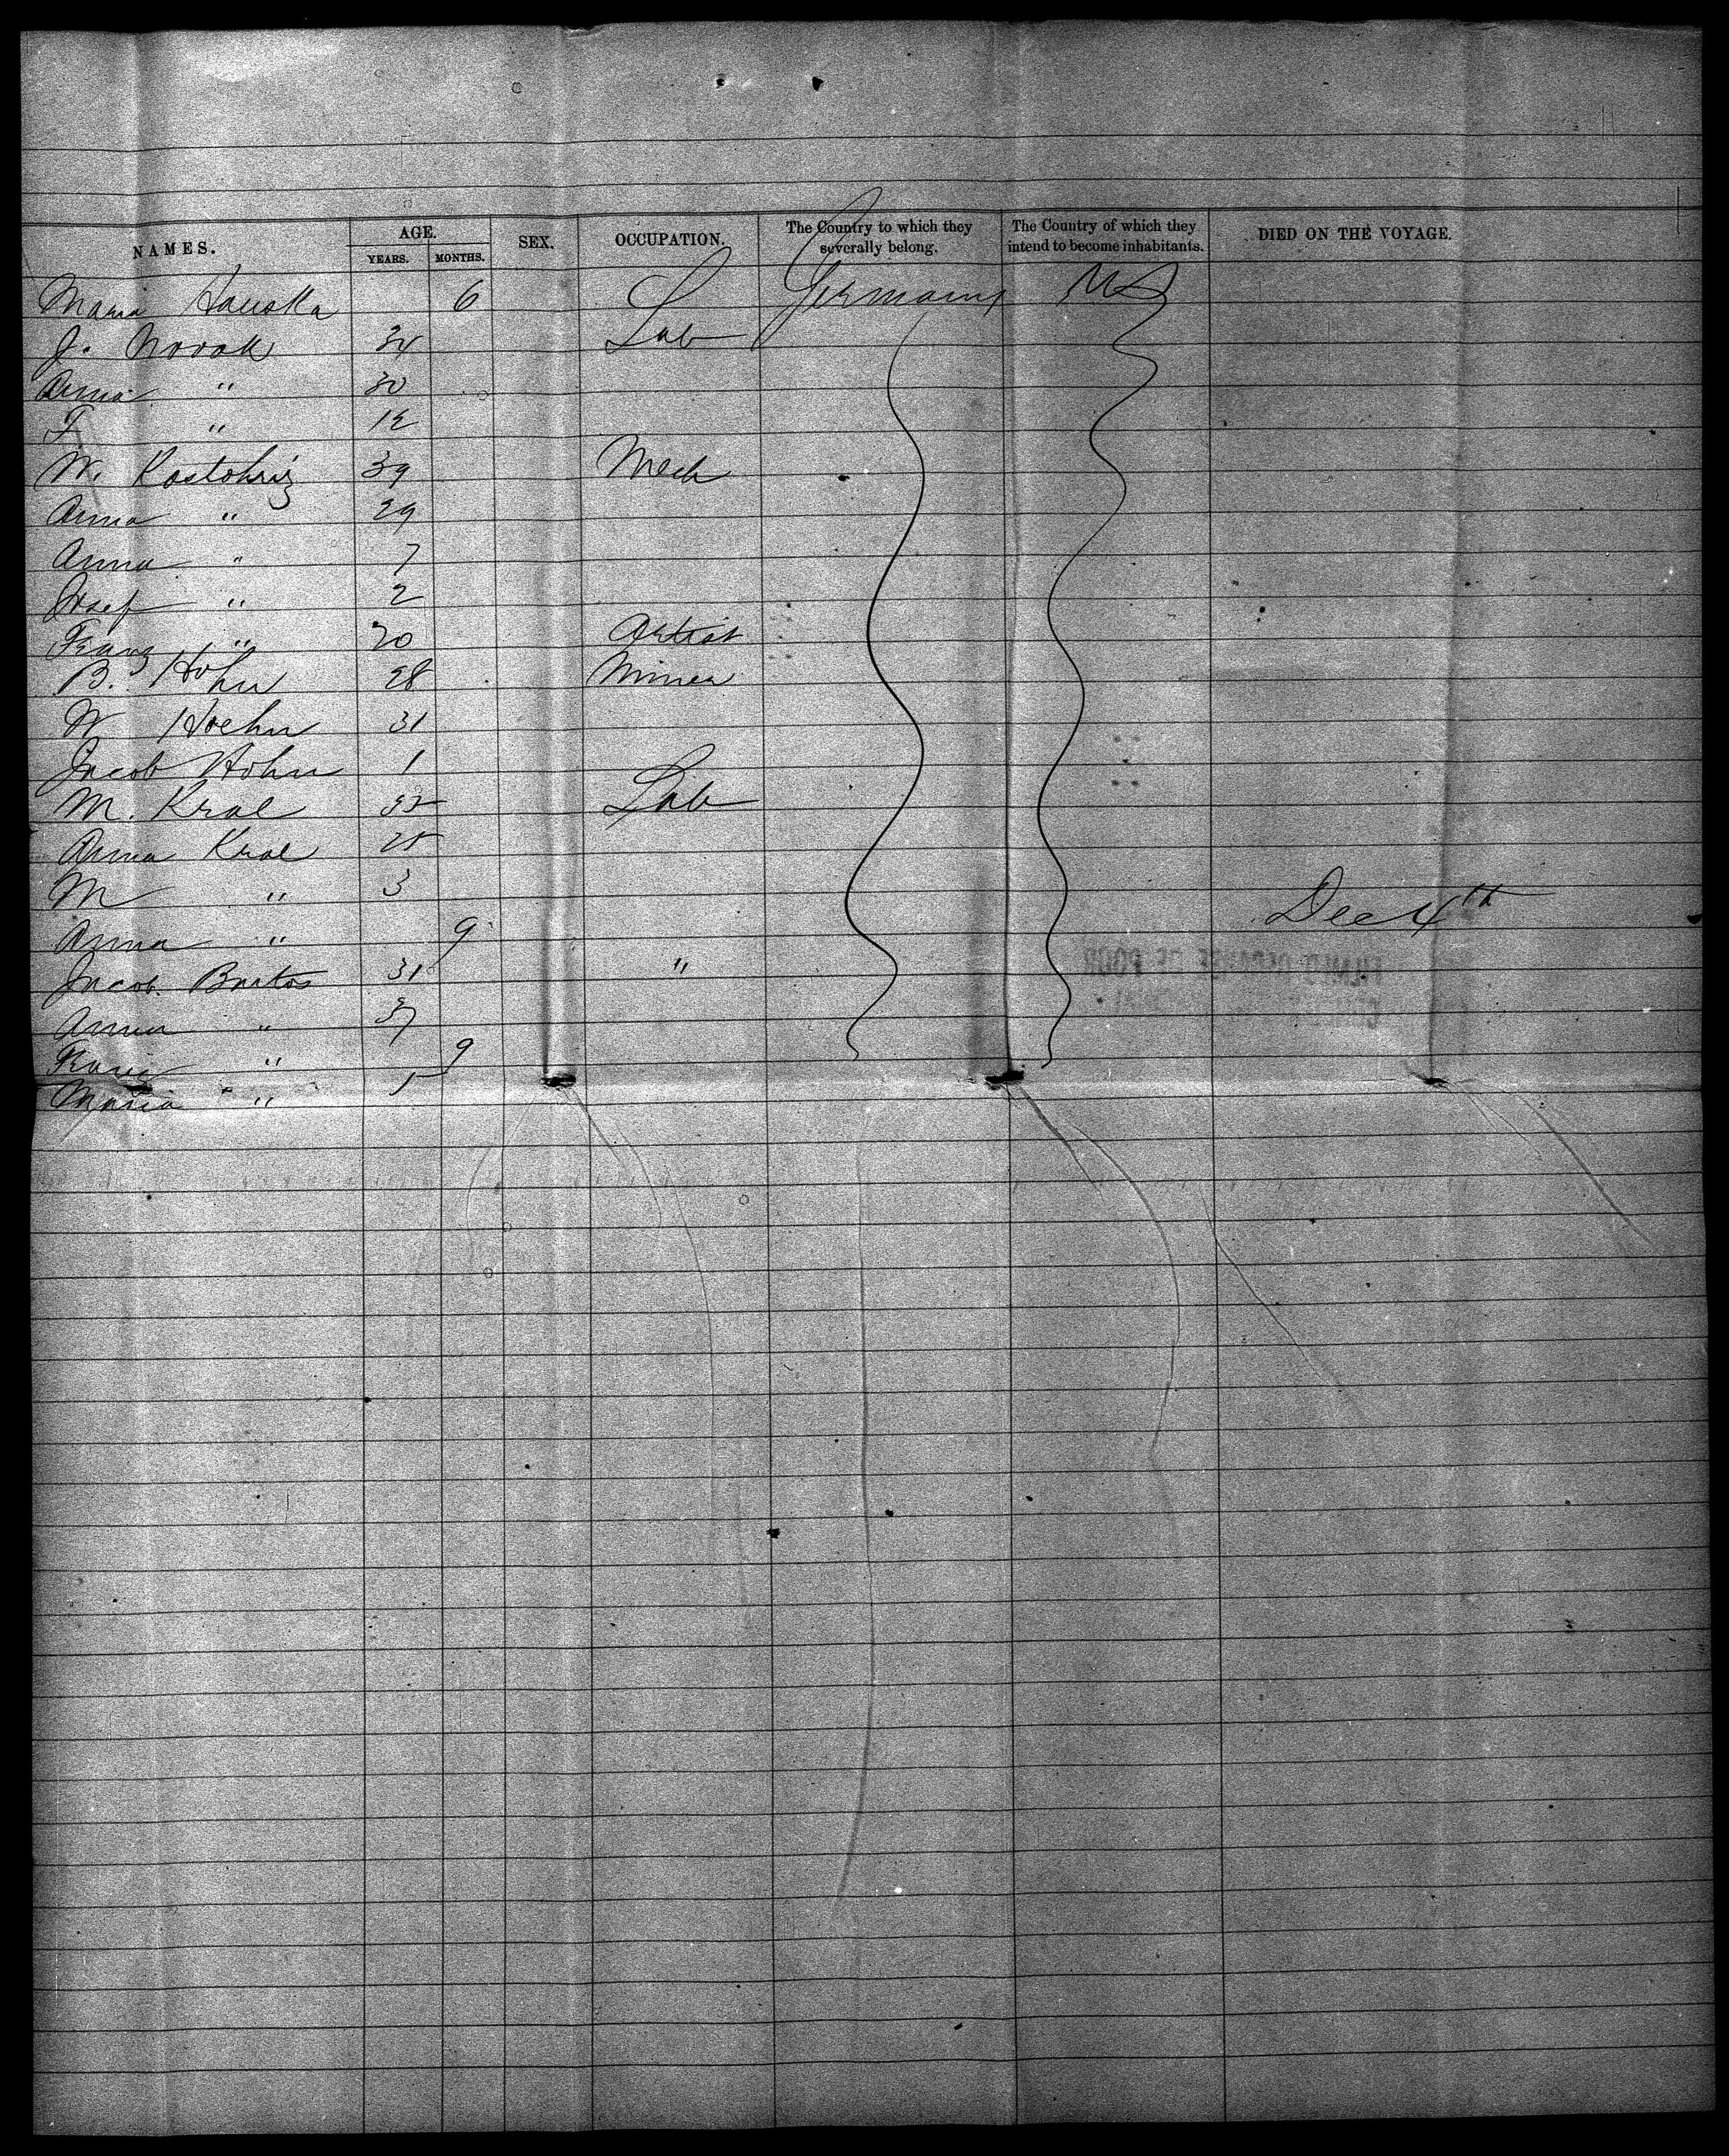 NAMES. AGE. SEX. OCCUPATION. The Country to which they severally belong. The Country of which they intend to become inhabitants. DIED ON THE VOYAGE.
YEARS. MONTHS.
Maria Hauska 6 Germany US
J. Novak 34 Lab
Anna " 30
F "
W. Kostohriz 39 Mech
Anna " 29
Anna " 7
Josef " 2
Franz " 20 Artist
B. Hohn 28 Miner
W Hoehn 31
Jacob Hohn 1
M. Kral Lab
Anna Kral 25
M " 3
Anna " 9 Dec 4th
Jacob Bartos 31 "
Anna "
Franz " 9
Maria " 1